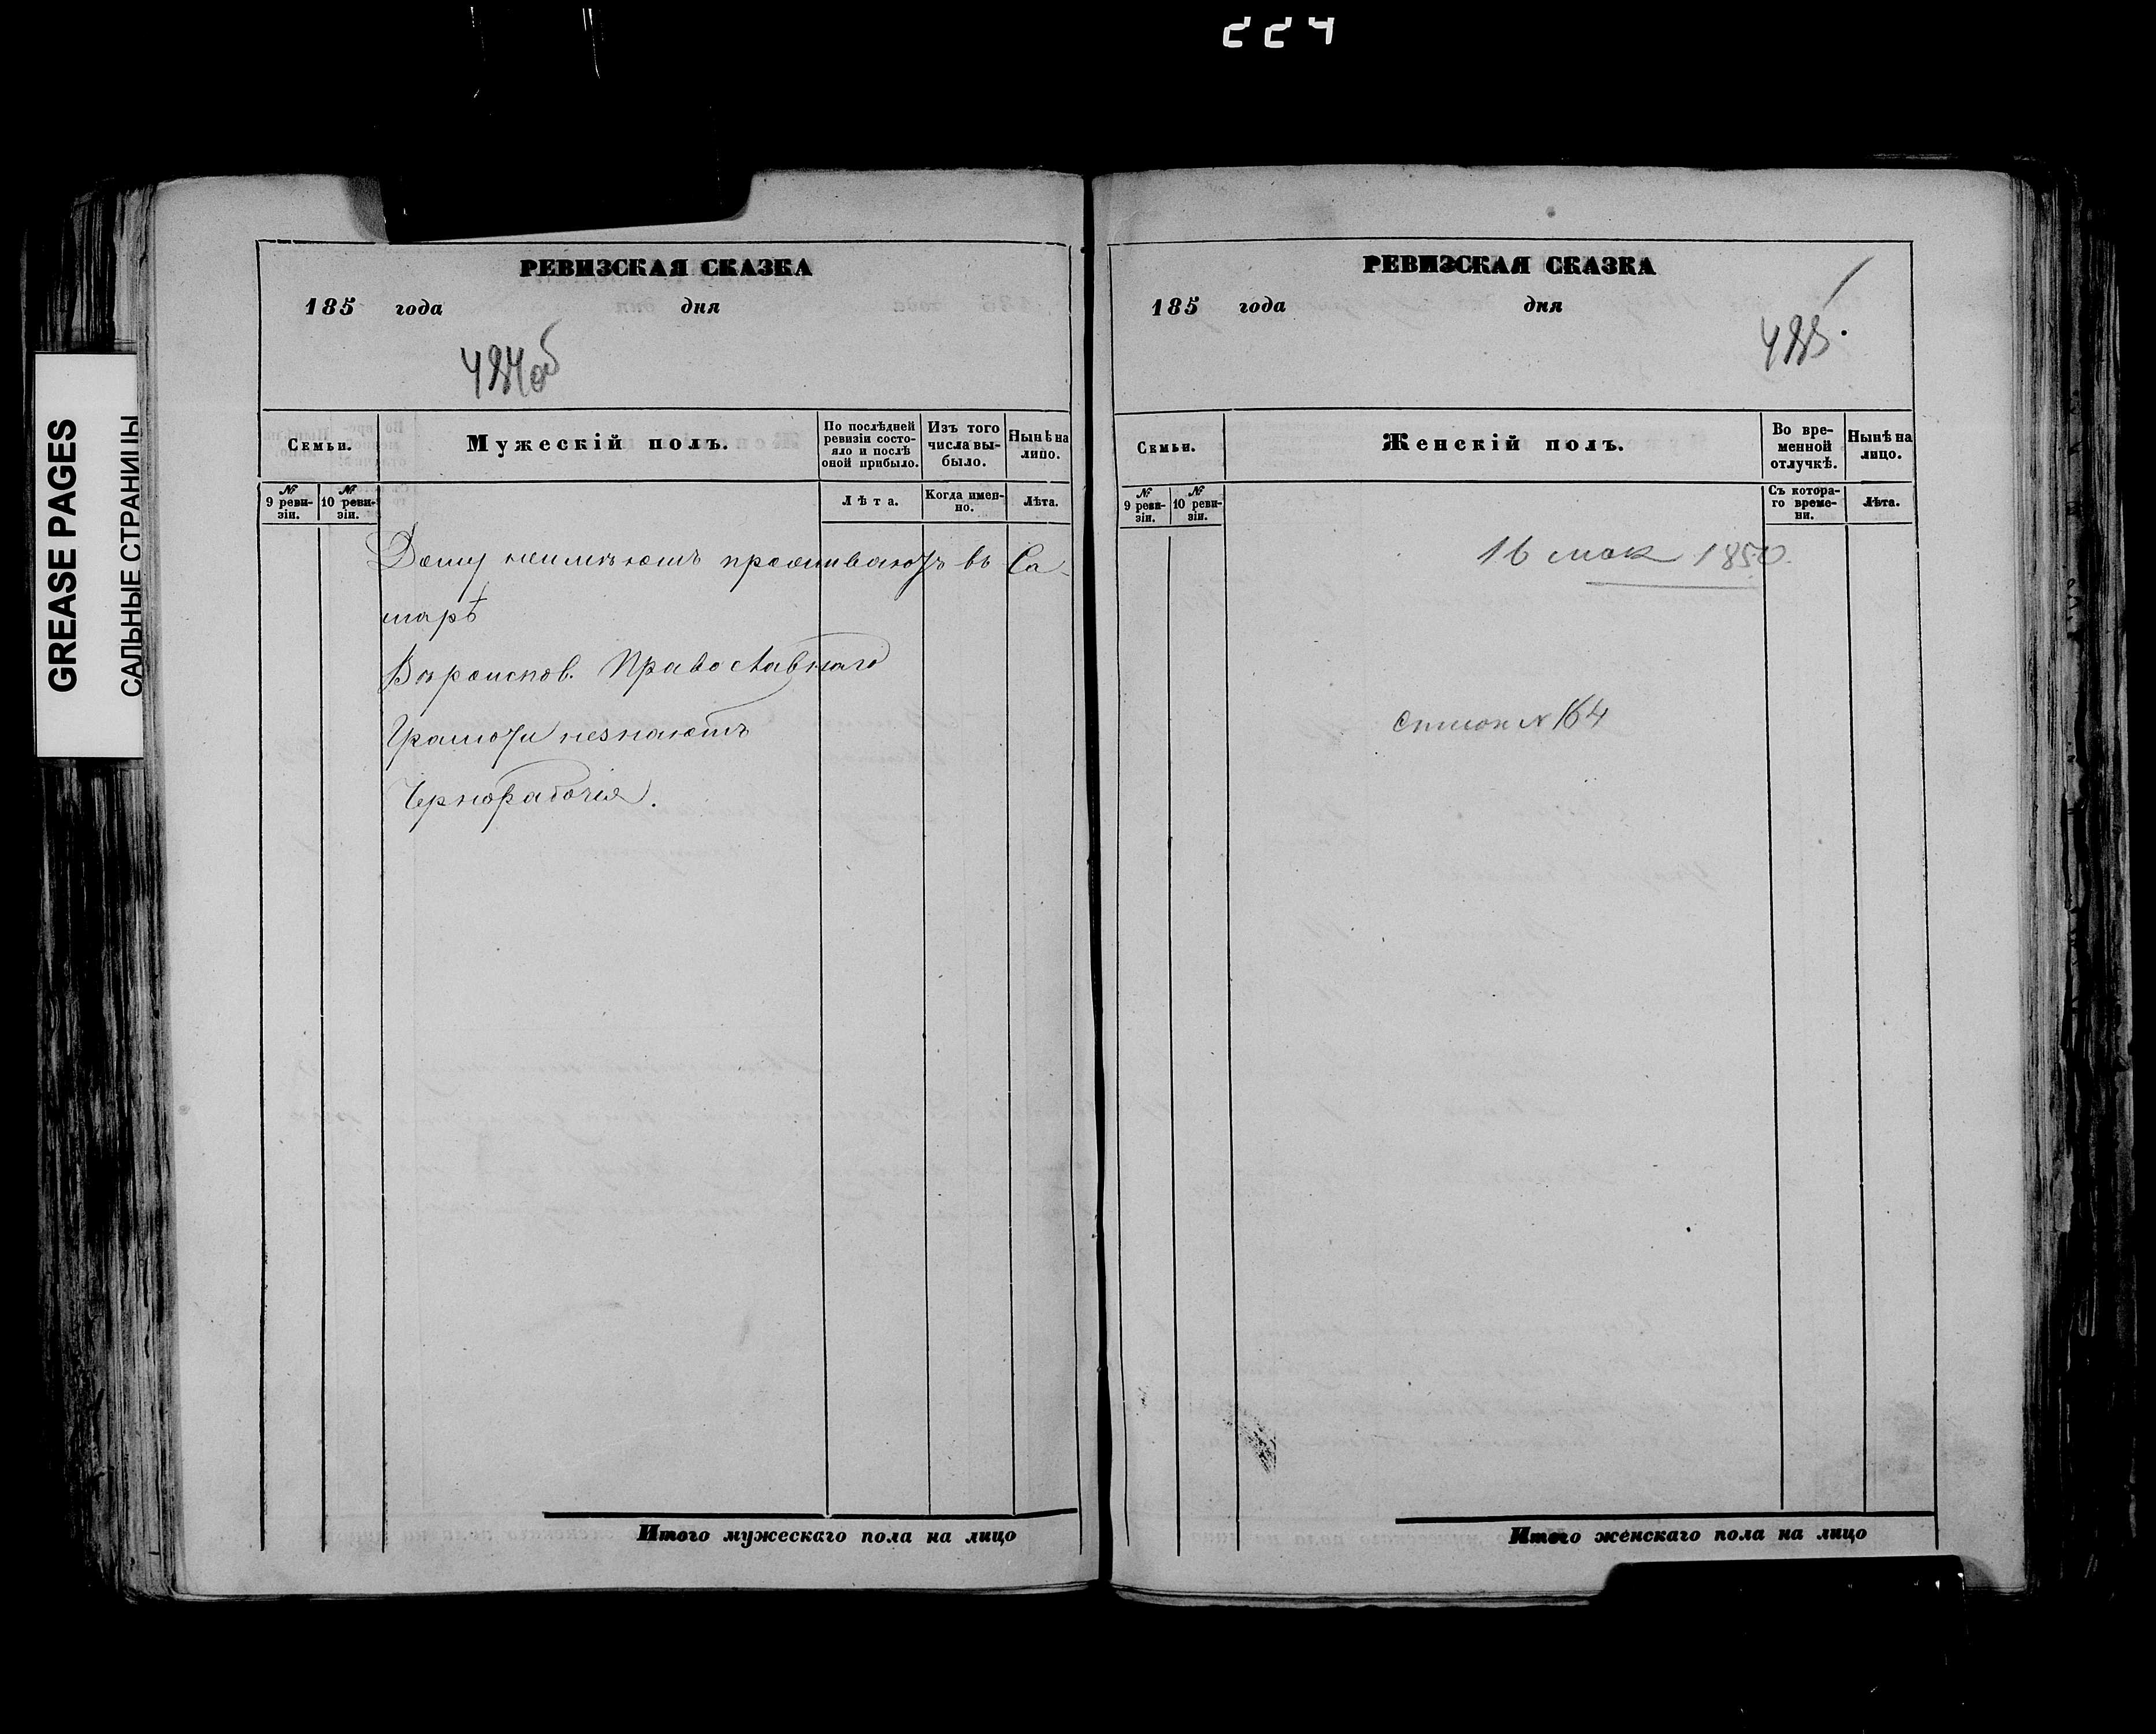 224
GREASE PAGES
САЛЬНЫЕ СТРАНИЦЫ
РЕВИЗСКАЯ СКАЗКА
185 года дня
484об
Семьи.
Мужескій полъ.
По послѣдней ревизіи состояло и послѣ оной прибыло.
Изъ того числа выбыло.
Нынѣ на лицо.
№ 9 ревизіи.
№ 10 ревизіи.
Лѣта.
Когда именно.
Лѣта.
Дому неимѣютъ проживаютъ въ Са-
марѣ
Вѣроиспов. Православнаго
Грамоти незнаютъ
Чернорабочія.
Итого мужескаго пола на лицо
РЕВИЗСКАЯ СКАЗКА
185 года дня
485.
Семьи.
Женскій полъ.
Во временной отлучкѣ.
Нынѣ на лицо.
№ 9 ревизіи.
№ 10 ревизіи.
Съ котораго времени.
Лѣта.
16 мая 1850.
№ 164
Итого женскаго пола на лицо